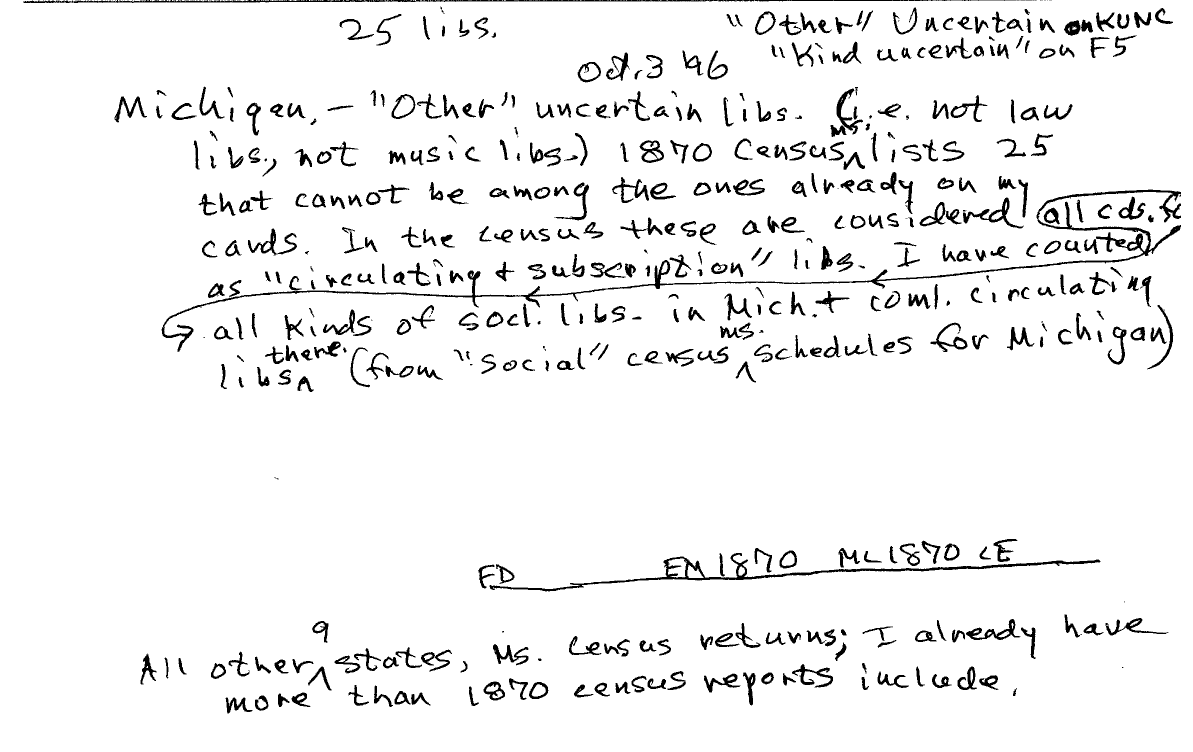 25 libs. "Other" Uncertain on KUNC
Oct. 3 '96 "Kind uncertain" on F5
Michigan, – "Other" uncertain libs. (i.e. not law
libs., not music libs.) 1870 Census ms. lists 25
that cannot be among the ones already on my
cards. In the census these are considered all cds.
as "circulating + subscription" libs. I have counted
all kinds of socl. libs. in Mich. + coml. circulating
libs there. (from "Social" census ms. schedules for Michigan)
FD EM 1870 ML 1870 CE
All other 9 states, Ms. Census returns; I already have
more than 1870 census reports include.